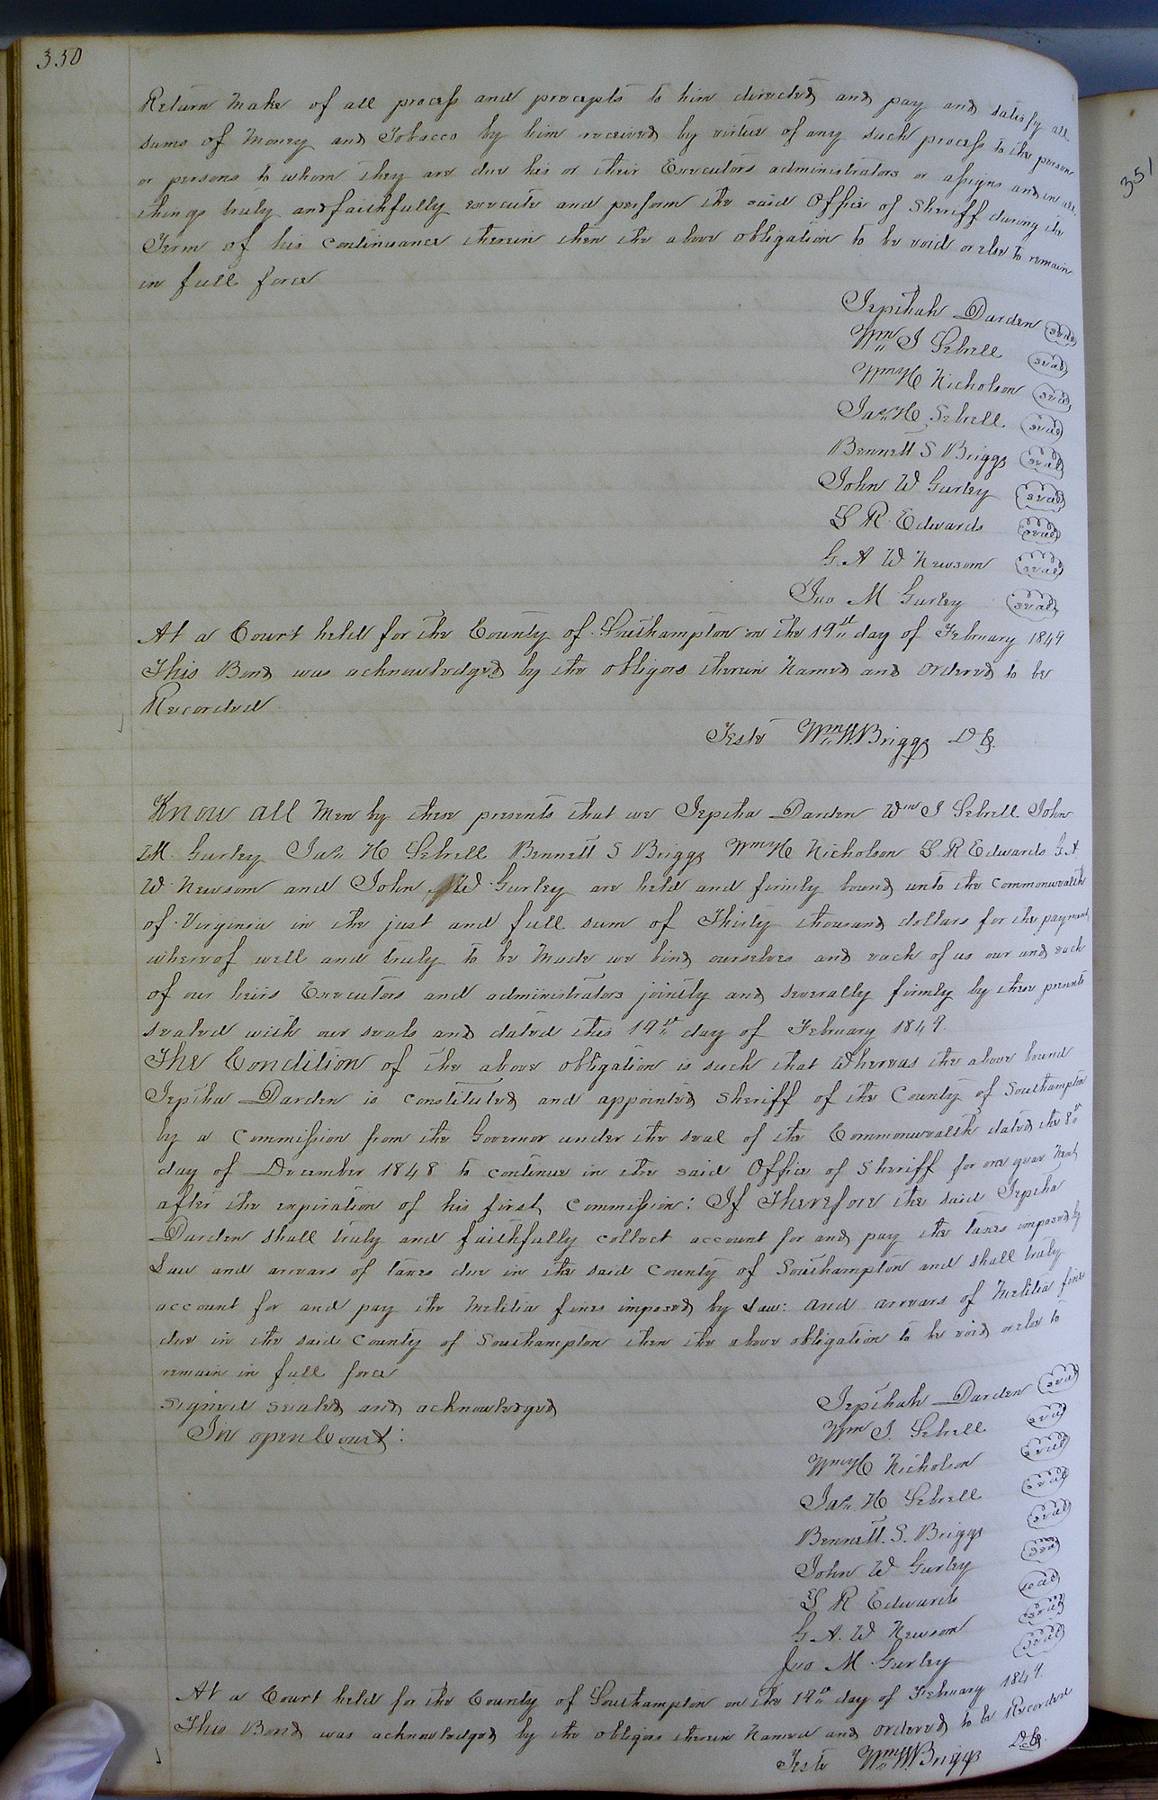 350
Return make of all process and precepts to him directed and pay and satisfy all
sums of money and Tobacco by him received by virtue of any such process to the person
or persons to whom they are due his or their Executors administrators or assigns and in all
things truly and faithfully execute and perform the said Office of Sheriff during the
Term of his continuance therein then the above obligation to be void or else to remain
in full force
Jepthah Darden seal
Wm J Sebrell seal
Wm H Nicholson seal
Jas. H Sebrell seal
Bennett S Briggs seal
John W Gurley seal
L R Edwards seal
G. A W Newsom seal
Jno M Gurley seal
At a Court held for the County of Southampton on the 19th day of February 1849
This Bond was acknowledged by the obligors therein named and ordered to be
Recorded
Teste Wm W. Briggs D C.
Know all Men by these presents that we Jeptha Darden Wm J Sebrell John
M. Gurley Jas. H Sebrell Bennett S Briggs Wm H Nicholson L R Edwards G. A
W. Newsom and John W Gurley are held and firmly bound unto the Commonwealth
of Virginia in the just and full sum of Thirty thousand dollars for the payment
whereof well and truly to be made we bind ourselves and each of us our and each
of our heirs Executors and administrators jointly and severally firmly by these presents
sealed with our seals and dated this 19th day of February 1849.
The Condition of the above obligation is such that Whereas the above bound
Jeptha Darden is constituted and appointed Sheriff of the County of Southampton
by a Commission from the Governor under the seal of the Commonwealth dated the 8th
day of December 1848 to continue in the said Office of Sheriff for one year Next
after the expiration of his first Commission: If Therefore the said Jeptha
Darden shall truly and faithfully collect account for and pay the taxes imposed by
Law and arrears of taxes due in the said County of Southampton and shall truly
account for and pay the Militia fines imposed by Law: and arrears of Militia fines
due in the said County of Southampton then the above obligation to be void or else to
remain in full force
Signed sealed and acknowledged
In open Court:
Jepthah Darden seal
Wm J. Sebrell seal
Wm H Nicholson seal
Jas. H Sebrell seal
Bennett. S. Briggs seal
John W Gurley seal
L R Edwards seal
G. A. W Newsom seal
Jno M Gurley seal
At a Court held for the County of Southampton on the 19th day of February 1849.
This Bond was acknowledged by the obligors therein Named and ordered to be Recorded
Teste Wm W. Briggs D. C.
351